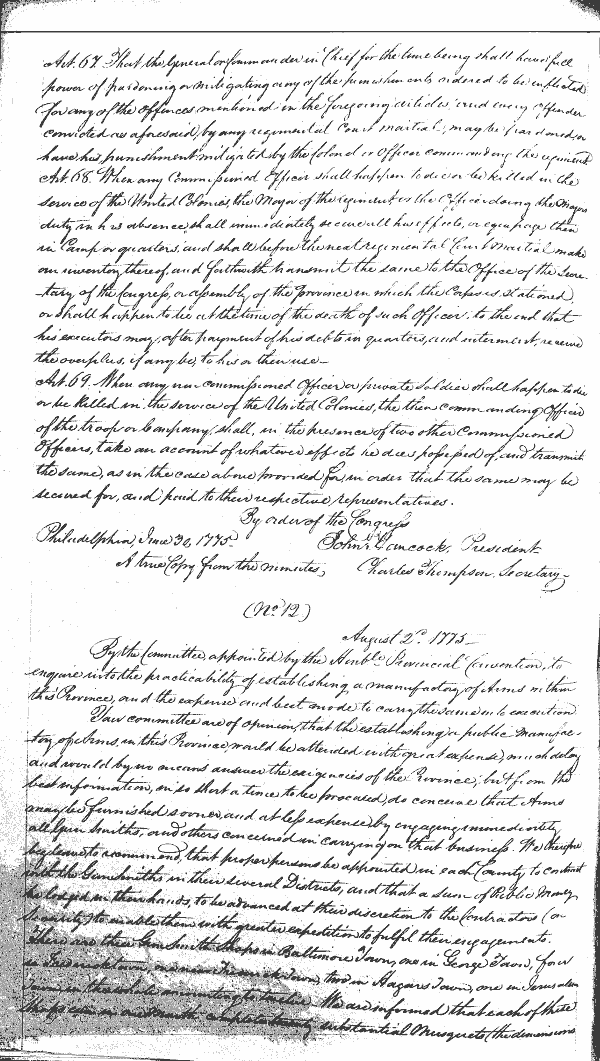 Art. 67. That the General or Commander in Chief for the time being shall have full
power of pardoning or mitigating any of the punishments ordered to be inflicted
for any of the offences mentioned in the foregoing articles, and every offender
convicted as aforesaid, by any regimental court martial, may be pardoned, or
have his punishment mitigated by the Colonel or Officer commanding the regiment
Art. 68. When any Commissioned Officer shall happen to die or be killed in the
service of the United Colonies, the Major of the regiment or the Officer doing the Majors
duty in his absence, shall immediately secure all his effects, or equipage then
in Camp or quarters, and shall before the next regimental Court Martial make
an inventory thereof, and forthwith transmit the same to the Office of the Secre-
-tary of the Congress, or assembly of the Province in which the Corps is stationed,
or shall happen to be at the time of the death of such Officer; to the end that
his executors may, after payment of his debts in quarters, and interment, receive
the overplus, if any be, to his or their use—
Art. 69. When any non commissioned Officer or private Soldier shall happen to die
or be killed in the service of the United Colonies, the then commanding Officer
of the troop or Company, shall, in the presence of two other Commissioned
Officers, take an account of whatever effects he dies possessed of, and transmit
the same, as in the case above provided for, in order that the same may be
secured for, and paid to their respective representatives.
By order of the Congress
Philadelphia, June 30, 1775— John Hancock, President
A true Copy from the minutes, Charles Thompson, Secretary—
(No. 12)
August 2d. 1775—
By the Committee, appointed by the Honble Provincial Convention, to
enquire into the practicability of establishing a manufactory of Arms within
this Province, and the expense and best mode to carry the same into execution
Your committee are of opinion, that the establishing a public manufac-
tory of Arms, in this Province, would be attended with great expense, much delay
and would by no means answer the exigencies of the Province; but from the
best information, in so short a time to be procured, do conceive that Arms
may be furnished sooner, and at less expense by engaging immediately
all Gun Smiths, and others concerned in carrying on that business. We therefore
beg leave to recommend, that proper persons be appointed in each County to contract
with the Gunsmiths in their several Districts, and that a sum of Public Money
be lodged in their hands, to be advanced at their discretion to the Contractors (on
Security) to enable them with greater expedition to fulfil their engagements.
There are three Gun Smith Shops in Baltimore Town, one in George Town, four
in Fredericktown, one near Fredericktown, two in Hagars Town, one in Jerusalem
Town, in the whole amounting to twelve. We are informed that each of these
Shops can in one Month complete twenty substantial Musquets (the dimensions